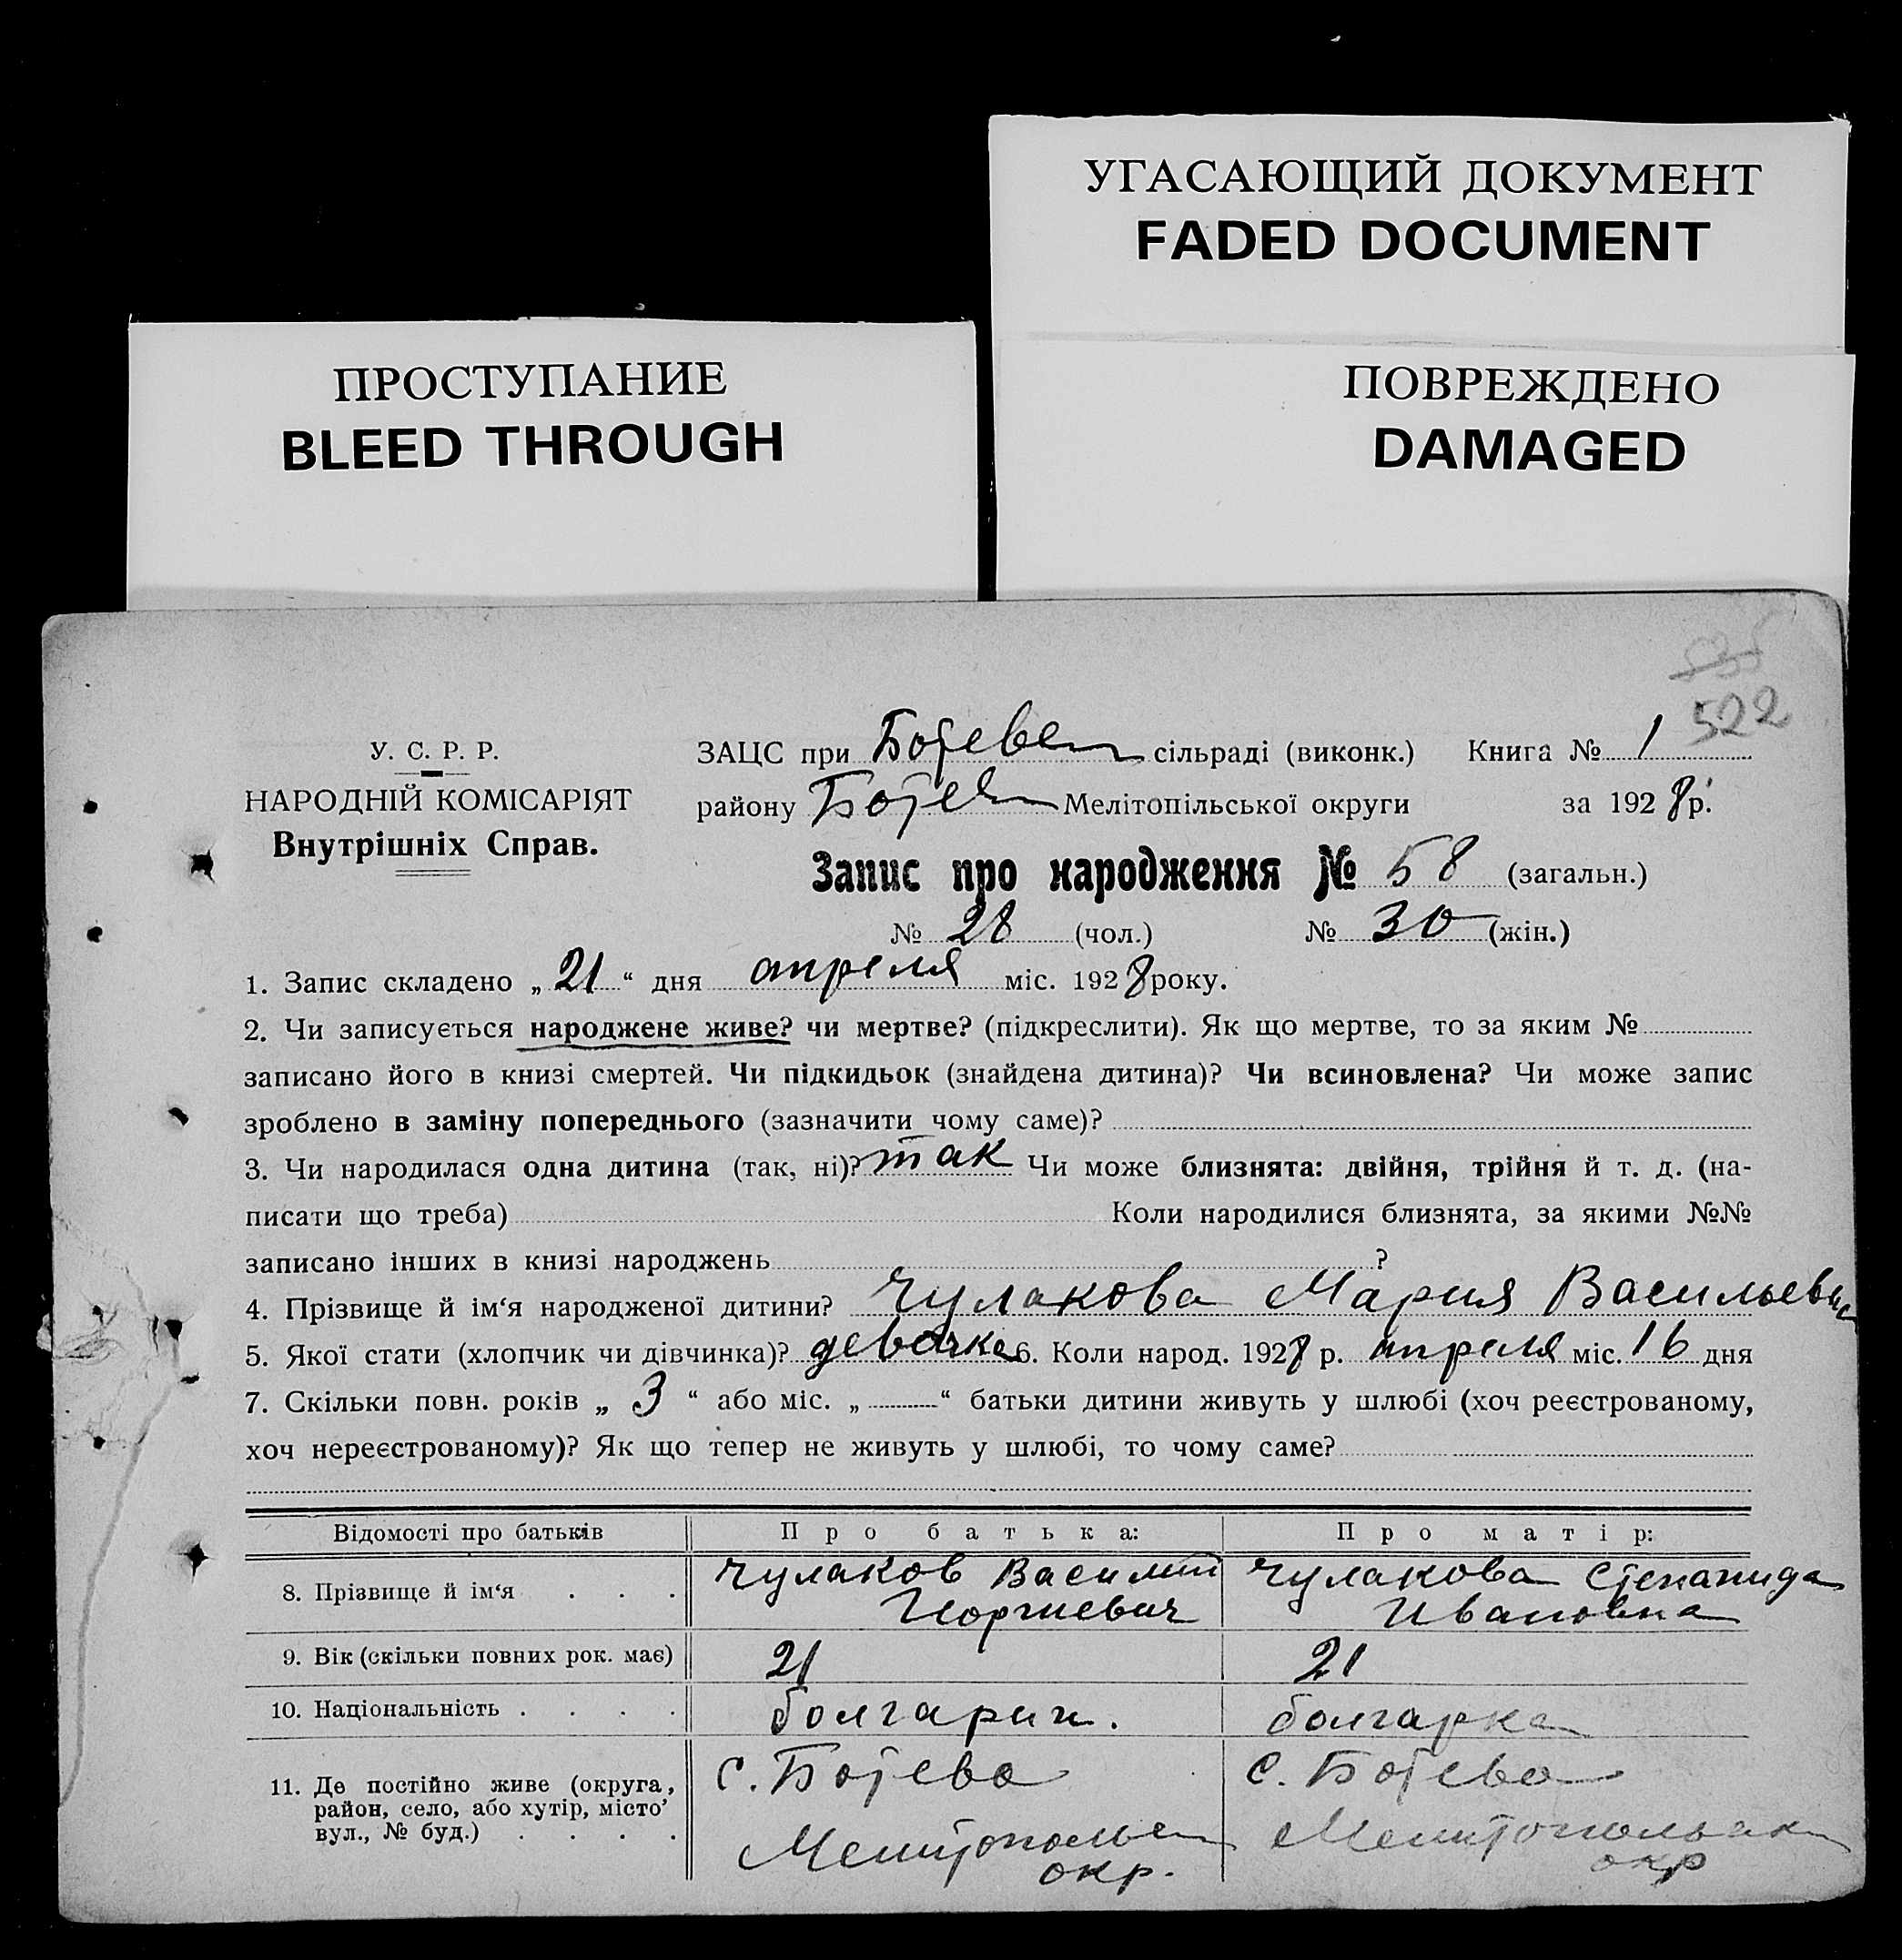 УГАСАЮЩИЙ ДОКУМЕНТ
FADED DOCUMENT
ПРОСТУПАНИЕ
BLEED THROUGH
ПОВРЕЖДЕНО
DAMAGED
535
522
У. С. Р. Р.
НАРОДНІЙ КОМІСАРІЯТ
Внутрішніх Справ.
ЗАЦС при Ботевск сільраді (виконк.) Книга № 1
району Ботев Мелітопільської округи за 1928 р.
Запис про народження № 58 (загальн.)
№ 28 (чол.) № 30 (жін.)
1. Запис складено „21“ дня апреля міс. 1928 року.
2. Чи записується народжене живе? чи мертве? (підкреслити). Як що мертве, то за яким №
записано його в книзі смертей. Чи підкидьок (знайдена дитина)? Чи всиновлена? Чи може запис
зроблено в заміну попереднього (зазначити чому саме)?
3. Чи народилася одна дитина (так, ні)? так Чи може близнята: двійня, трійня й т. д. (на-
писати що треба) Коли народилися близнята, за якими №№
записано інших в книзі народжень ?
4. Прізвище й ім‘я народженої дитини? Чулакова Мария Васильевна
5. Якої стати (хлопчик чи дівчинка)? девочка 6. Коли народ. 1928 р. апреля міс. 16 дня
7. Скільки повн. років „ 3 “ або міс. „ “ батьки дитини живуть у шлюбі (хоч реєстрованому,
хоч нереєстрованому)? Як що тепер не живуть у шлюбі, то чому саме?
Відомості про батьків Про батька: Про матір:
8. Прізвище й ім‘я . . . Чулаков Василий Чулакова Степанида
Георгиевич Ивановна
9. Вік (скільки повних рок. має) 21 21
10. Національність . . . . болгарин. болгарка
11. Де постійно живе (округа,
район, село, або хутір, місто’
вул., № буд.) . . . .
с. Ботево
Мелитопольск
окр.
с. Ботево
Мелитопольск
окр